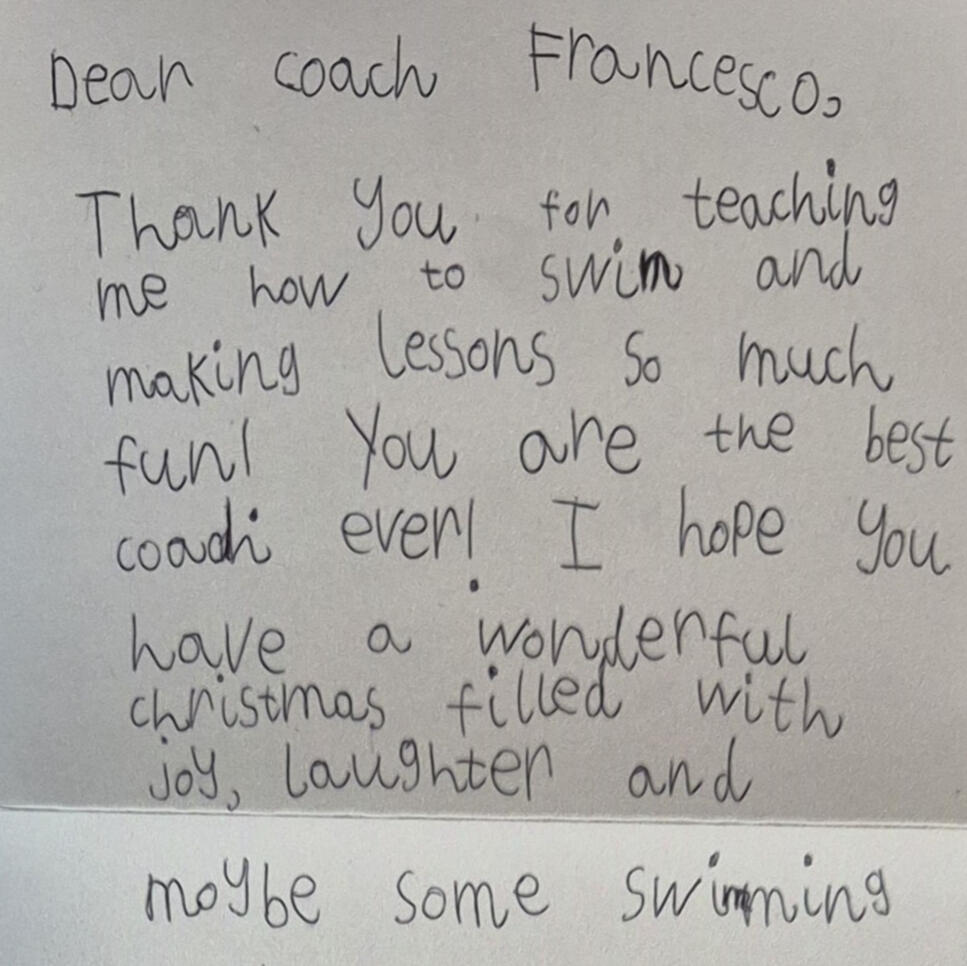 Dear coach Francesco,
Thank you for teaching
me how to swim and
making lessons so much
fun! You are the best
coach ever! I hope you
have a wonderful
christmas filled with
joy, laughter and
maybe some swimming